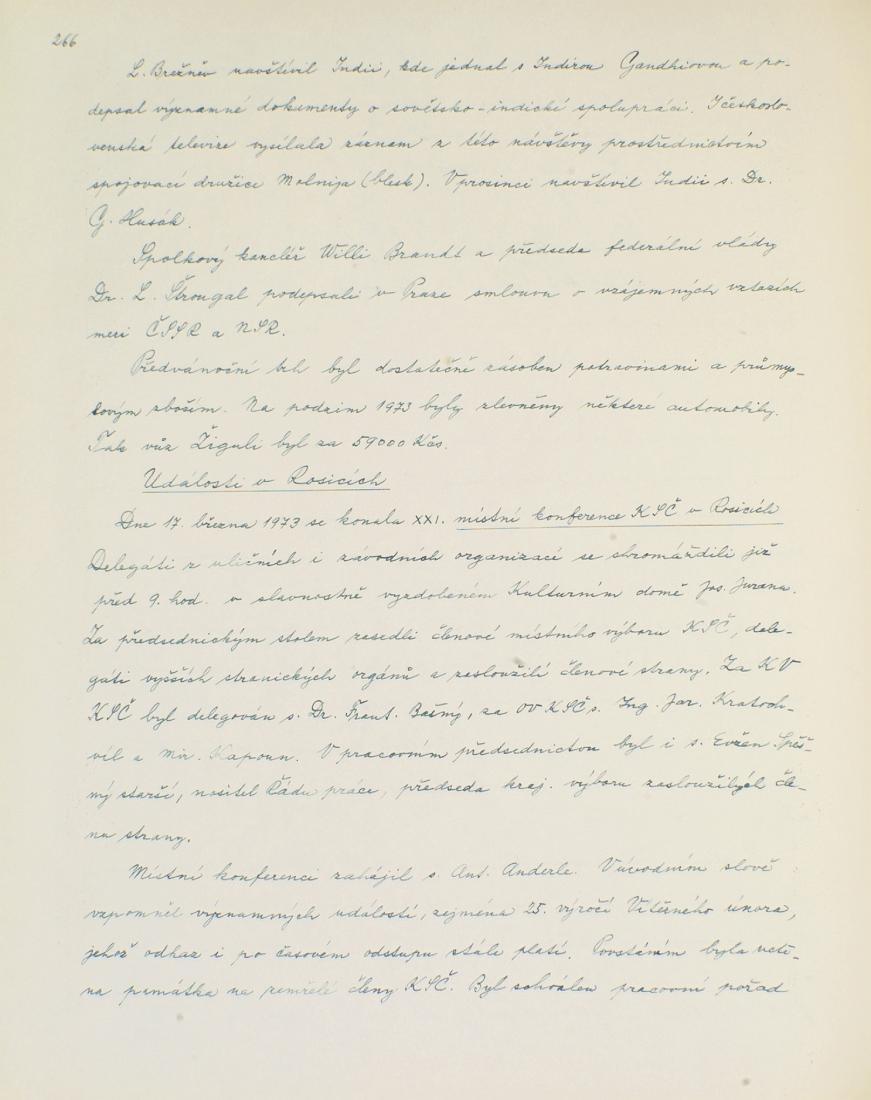 266
L. Brežněv navštívil Indii, kde jednal s Indírou Gandhiovou a po-
depsal významné dokumenty o sovětsko-indické spolupráci. I českoslo-
venská televize vysílala záznam z této návštěvy prostřednictvím
spojovací družice Molnija (blesk). V prosinci navštívil Indii s. Dr.
G. Husák.
Spolkový kancléř Willi Brandt a předseda federální vlády
Dr. L. Štrougal podepsali v Praze smlouvu o vzájemných vztazích
mezi ČSSR a NSR.
Předvánoční trh byl dostatečně zásoben potravinami a průmys-
lovým zbožím. Na podzim 1973 byly zlevněny některé automobily.
Tak vůz Žiguli byl za 59000 Kčs.
Události v Rosicích
Dne 17. března 1973 se konala XXI. místní konference KSČ v Rosicích
Delegáti z uličních i závodních organizací se shromáždili již
před 9. hod. v slavnostně vyzdobeném Kulturním domě Jos. Jurana.
Za předsednickým stolem zasedli členové místního výboru KSČ, dele-
gáti vyšších stranických orgánů a zasloužilí členové strany. Za KV
KSČ byl delegován s. Dr. Frant. Bašný, za OV KSČ s. Ing. Jar. Kratoch-
víl a Mir. Kapoun. V pracovním předsednictvu byl i s. Evžen Spěš-
ný starší, nositel Řádu práce, předseda kraj. výboru zasloužilých čle-
nů strany.
Místní konferenci zahájil s. Ant. Anderle. V úvodním slově
vzpomněl významných událostí, zejména 25. výročí Vítězného února,
jehož odkaz i po časovém odstupu stále platí. Povstáním byla uctě-
na památka na zemřelé členy KSČ. Byl schválen pracovní pořad